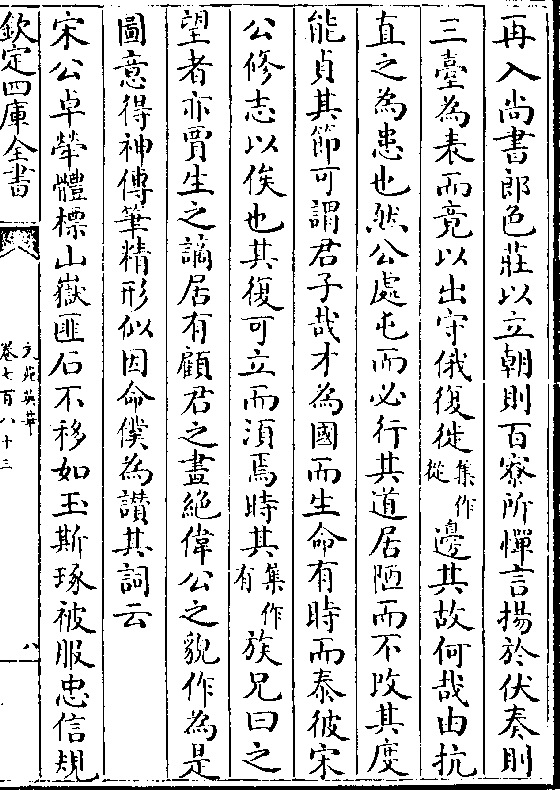 再入尚書郎色莊以立朝則百寮所憚言揚於伏奏則
三臺為表而竟以出守俄復徙集作從邊其故何哉由抗
直之為患也然公處屯而必行其道居陋而不改其度
能貞其節可謂君子哉才為國而生命有時而泰彼宋
公修志以俟也其復可立而湏焉時其集作有族兄曰之
望者亦賈生之謫居有顧君之畫絶偉公之貌作為是
圖意得神傳筆精形似因命僕為讃其詞云
宋公卓犖體標山嶽匪石不移如玉斯琢被服忠信規
欽定四庫全書
文苑英華
卷七百八十三
八